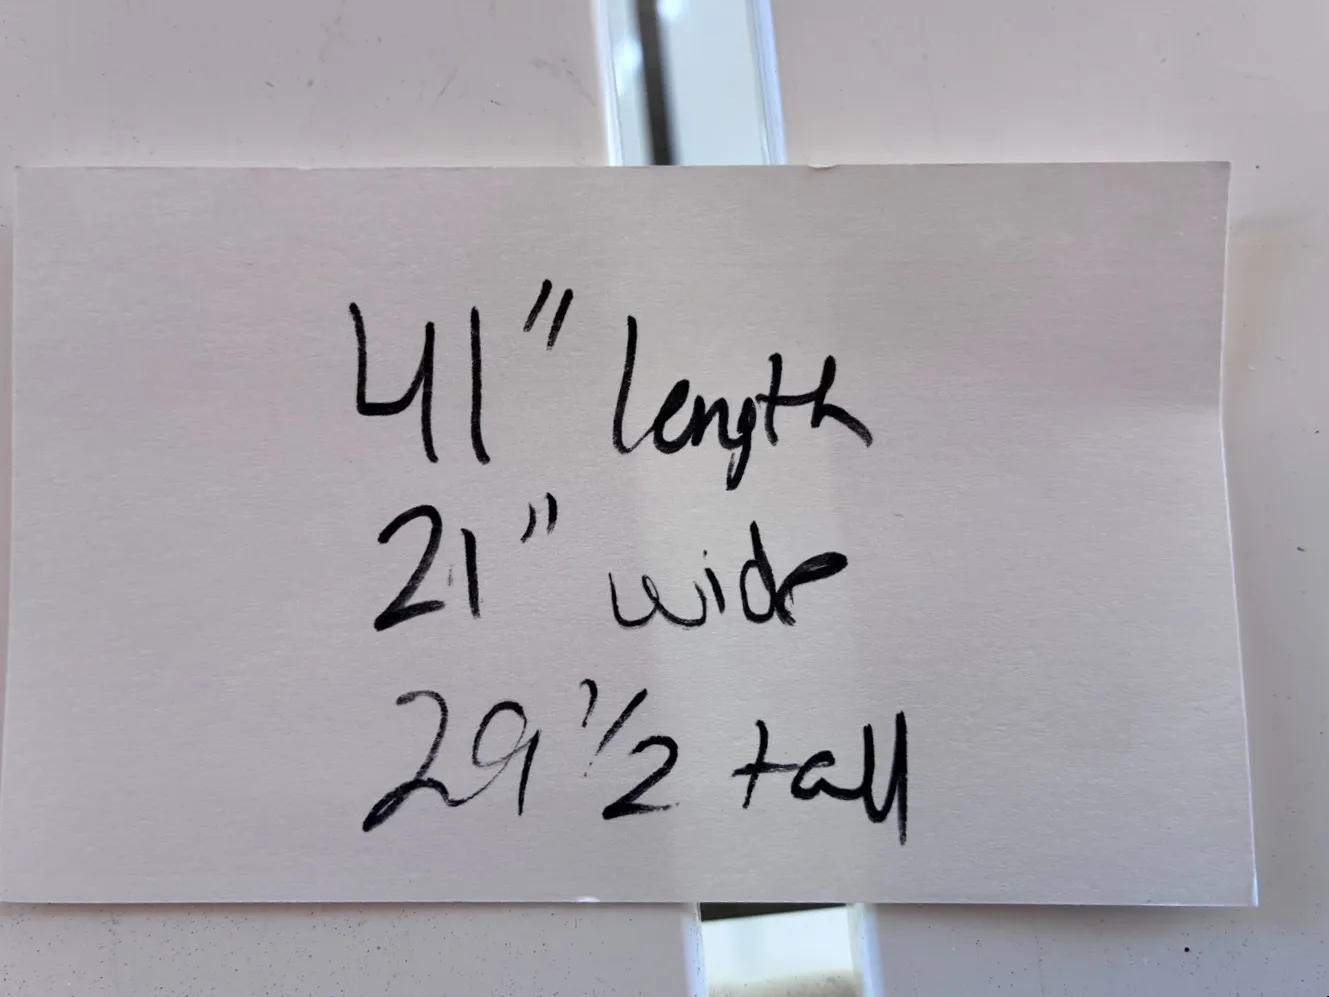 41" length
21" wide
29 1/2 tall